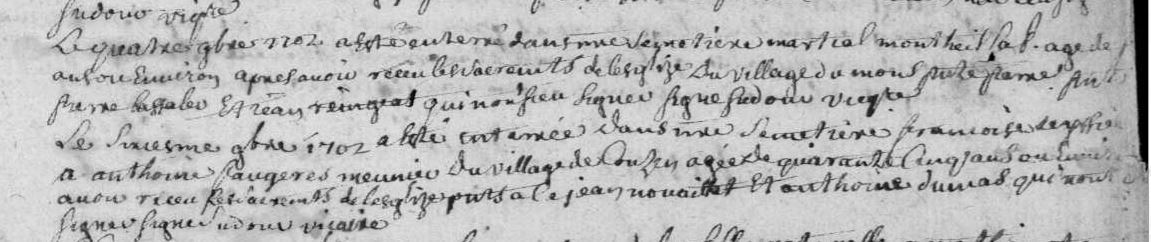 sudour vicqre
Le quatre 9bre 1702 a esté enterré dans nre semetiere martial montheil lab. age de
ans ou Environ apres avoir receu les sacremts de leglize Du village du mons puts pierre
pierre Et jean qui nont sceu signer signe sudour vicqre
Le siziesme 9bre 1702 a esté enterrée dans nre semetiere francoise
a anthoine faugeres meunier du village de agée de quarante cinq ans ou Enviro
avoir receu les sacremts de leglize puts a ce jean novaillat Et anthoine dumas qui nont
signer signe sudour vicaire